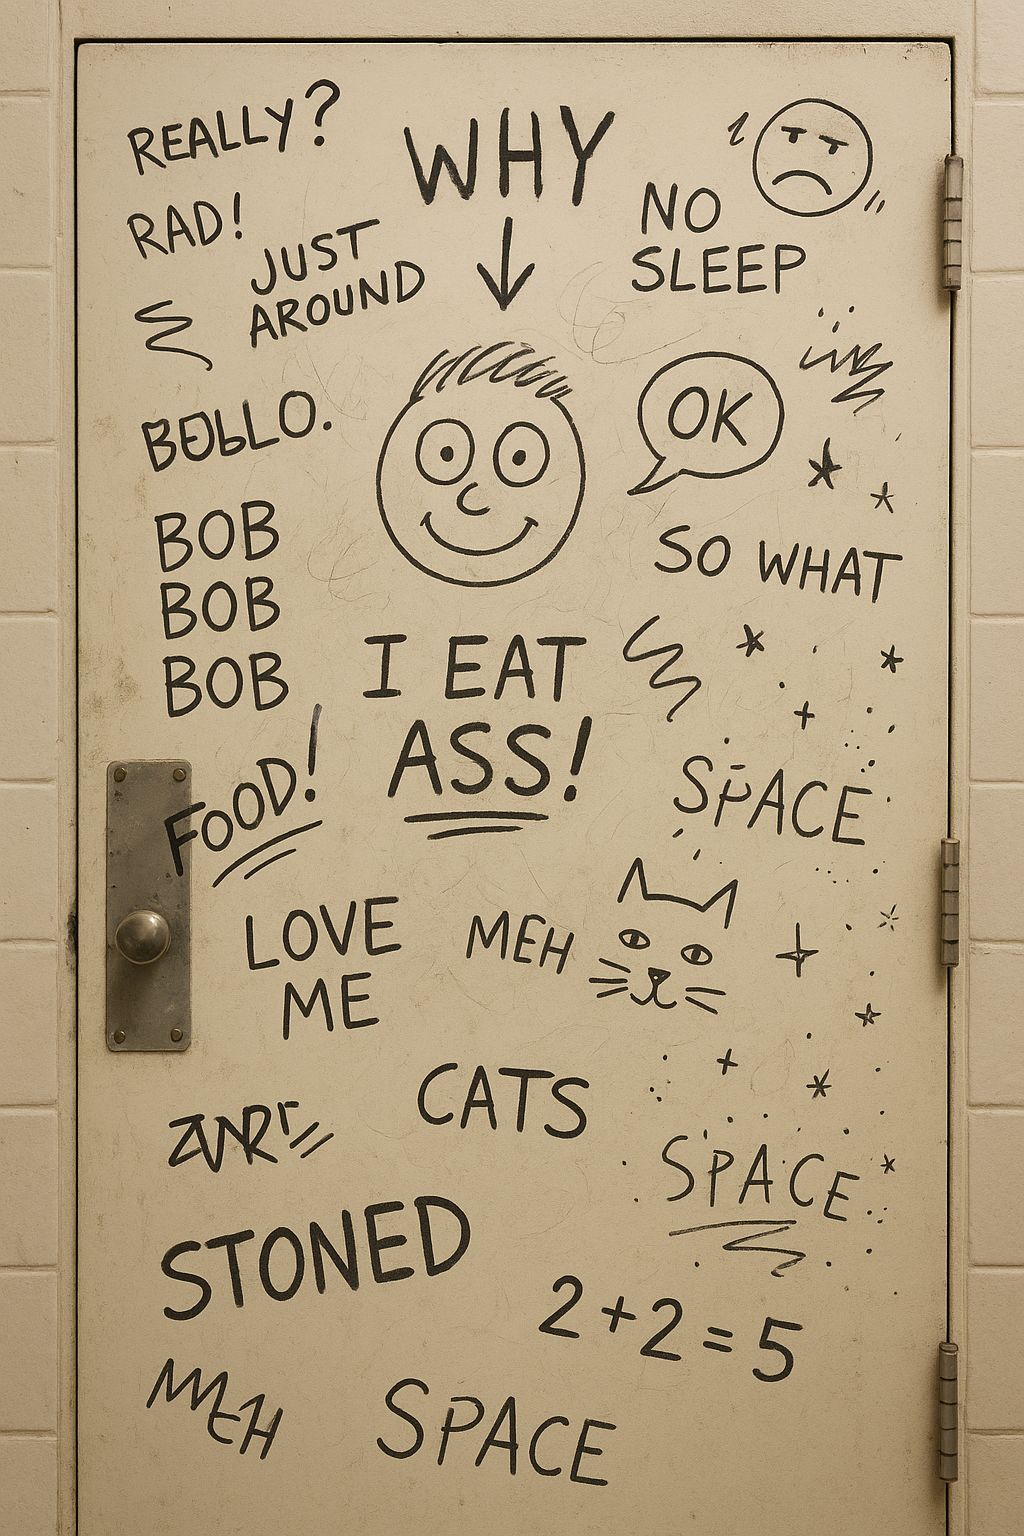 REALLY?
WHY
RAD!
NO
SLEEP
JUST
AROUND
OK
BOB
BOB
BOB
SO WHAT
I EAT
ASS!
FOOD!
SPACE
LOVE
ME
MEH
CATS
SPACE
STONED
2+2=5
MEH
SPACE